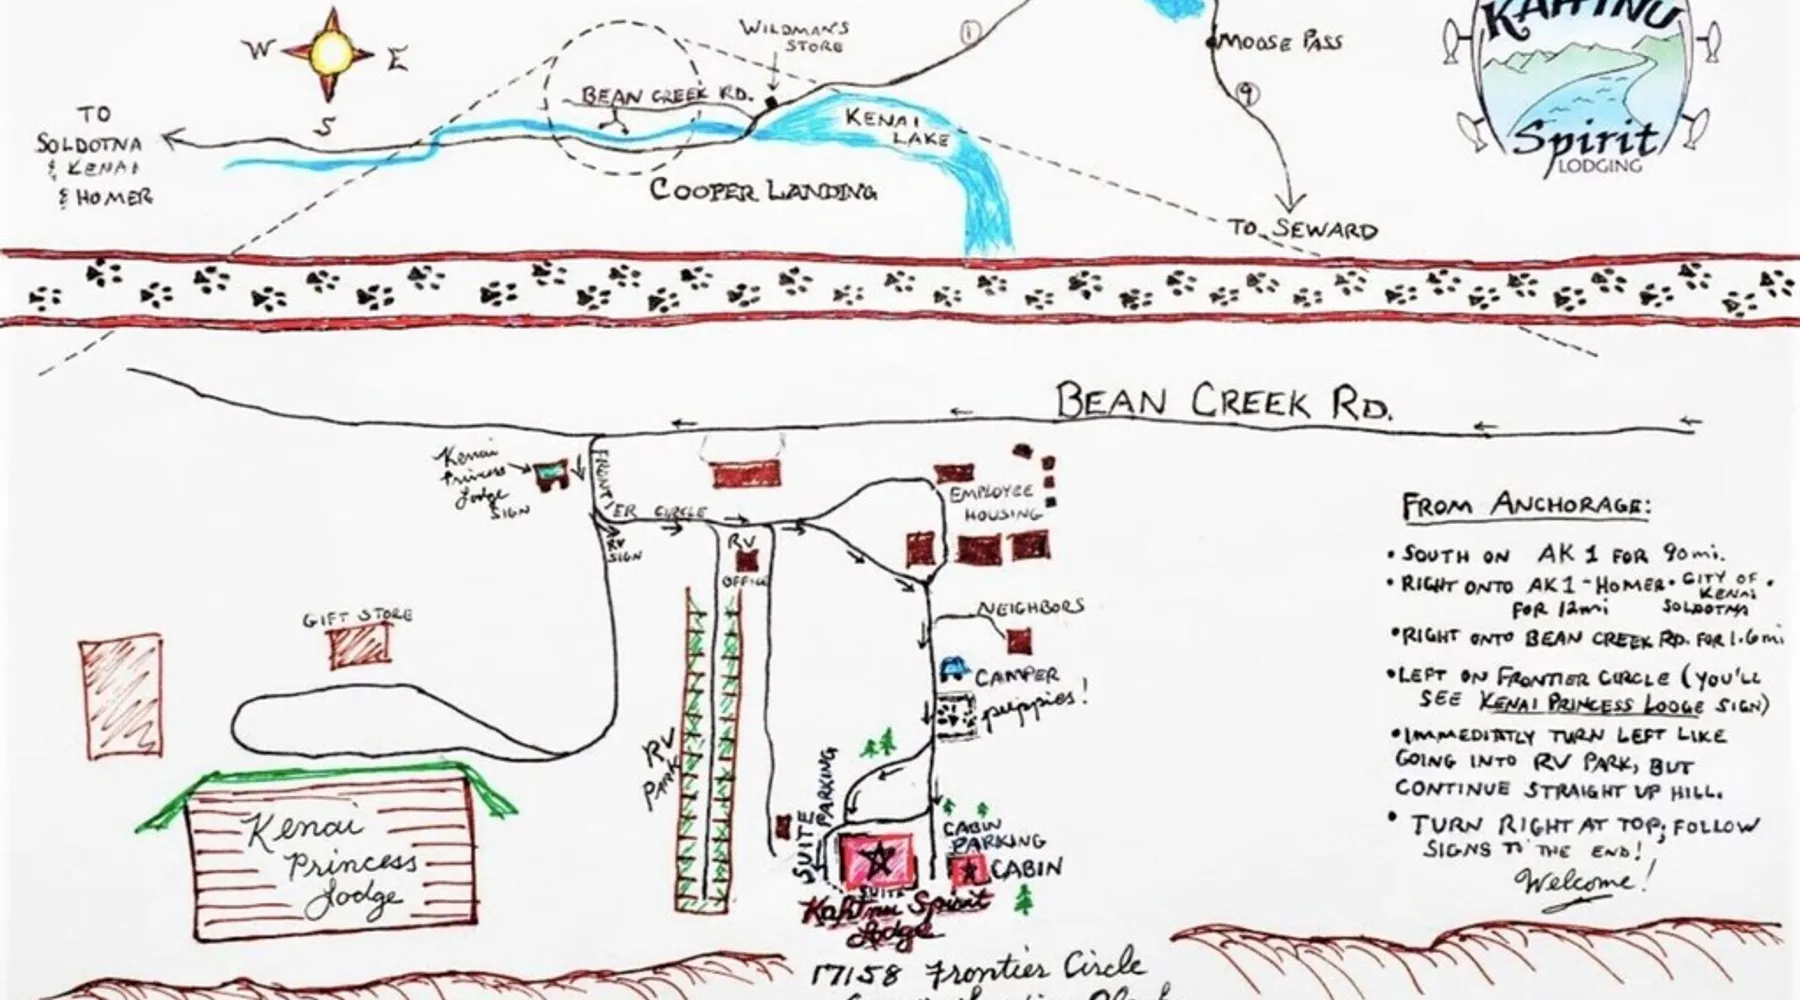 KAHTNU
Spirit
LODGING
W
E
S
TO
SOLDOTNA
& KENAI
& HOMER
BEAN CREEK RD.
WILDMAN'S
STORE
1
KENAI
LAKE
COOPER LANDING
MOOSE PASS
9
TO SEWARD
BEAN CREEK RD.
Kenai
Princess
Lodge
SIGN
FRONTIER CIRCLE
RV
SIGN
RV
OFFICE
EMPLOYEE
HOUSING
NEIGHBORS
CAMPER
puppies!
GIFT STORE
RV
PARK
SUITE
PARKING
CABIN
PARKING
CABIN
SUITE
Kahtnu Spirit
Lodge
Kenai
Princess
Lodge
17158 Frontier Circle
FROM ANCHORAGE:
• SOUTH ON AK 1 FOR 90mi.
• RIGHT ONTO AK1-HOMER • CITY OF •
KENAI
FOR 12mi SOLDOTNA
• RIGHT ONTO BEAN CREEK RD. FOR 1.6mi
• LEFT ON FRONTIER CIRCLE (YOU'LL
SEE KENAI PRINCESS LODGE SIGN)
• IMMEDIATLY TURN LEFT LIKE
GOING INTO RV PARK, BUT
CONTINUE STRAIGHT UP HILL.
• TURN RIGHT AT TOP; FOLLOW
SIGNS TO THE END!
Welcome!